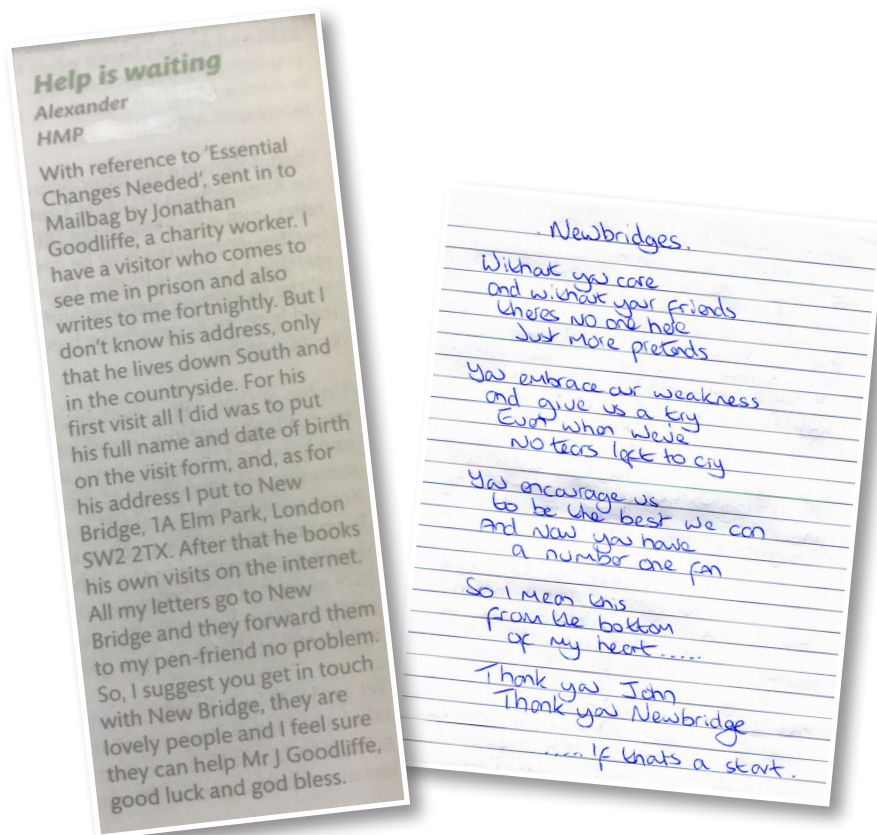 Help is waiting
Alexander
HMP
With reference to 'Essential
Changes Needed', sent in to
Mailbag by Jonathan
Goodliffe, a charity worker. I
have a visitor who comes to
see me in prison and also
writes to me fortnightly. But I
don't know his address, only
that he lives down South and
in the countryside. For his
first visit all I did was to put
his full name and date of birth
on the visit form, and, as for
his address I put to New
Bridge, 1A Elm Park, London
SW2 2TX. After that he books
his own visits on the internet.
All my letters go to New
Bridge and they forward them
to my pen-friend no problem.
So, I suggest you get in touch
with New Bridge, they are
lovely people and I feel sure
they can help Mr J Goodliffe,
good luck and god bless.
. Newbridges.
Without you care
and without your friends
theres NO one here
Just More pretends
You embrace our weakness
and give us a try
Even when We've
NO tears left to cry
You encourage us
to be the best we can
And Now you have
a number one fan
So I Mean this
from the bottom
of my heart.....
Thank you John
Thank you Newbridge
..... If thats a start.